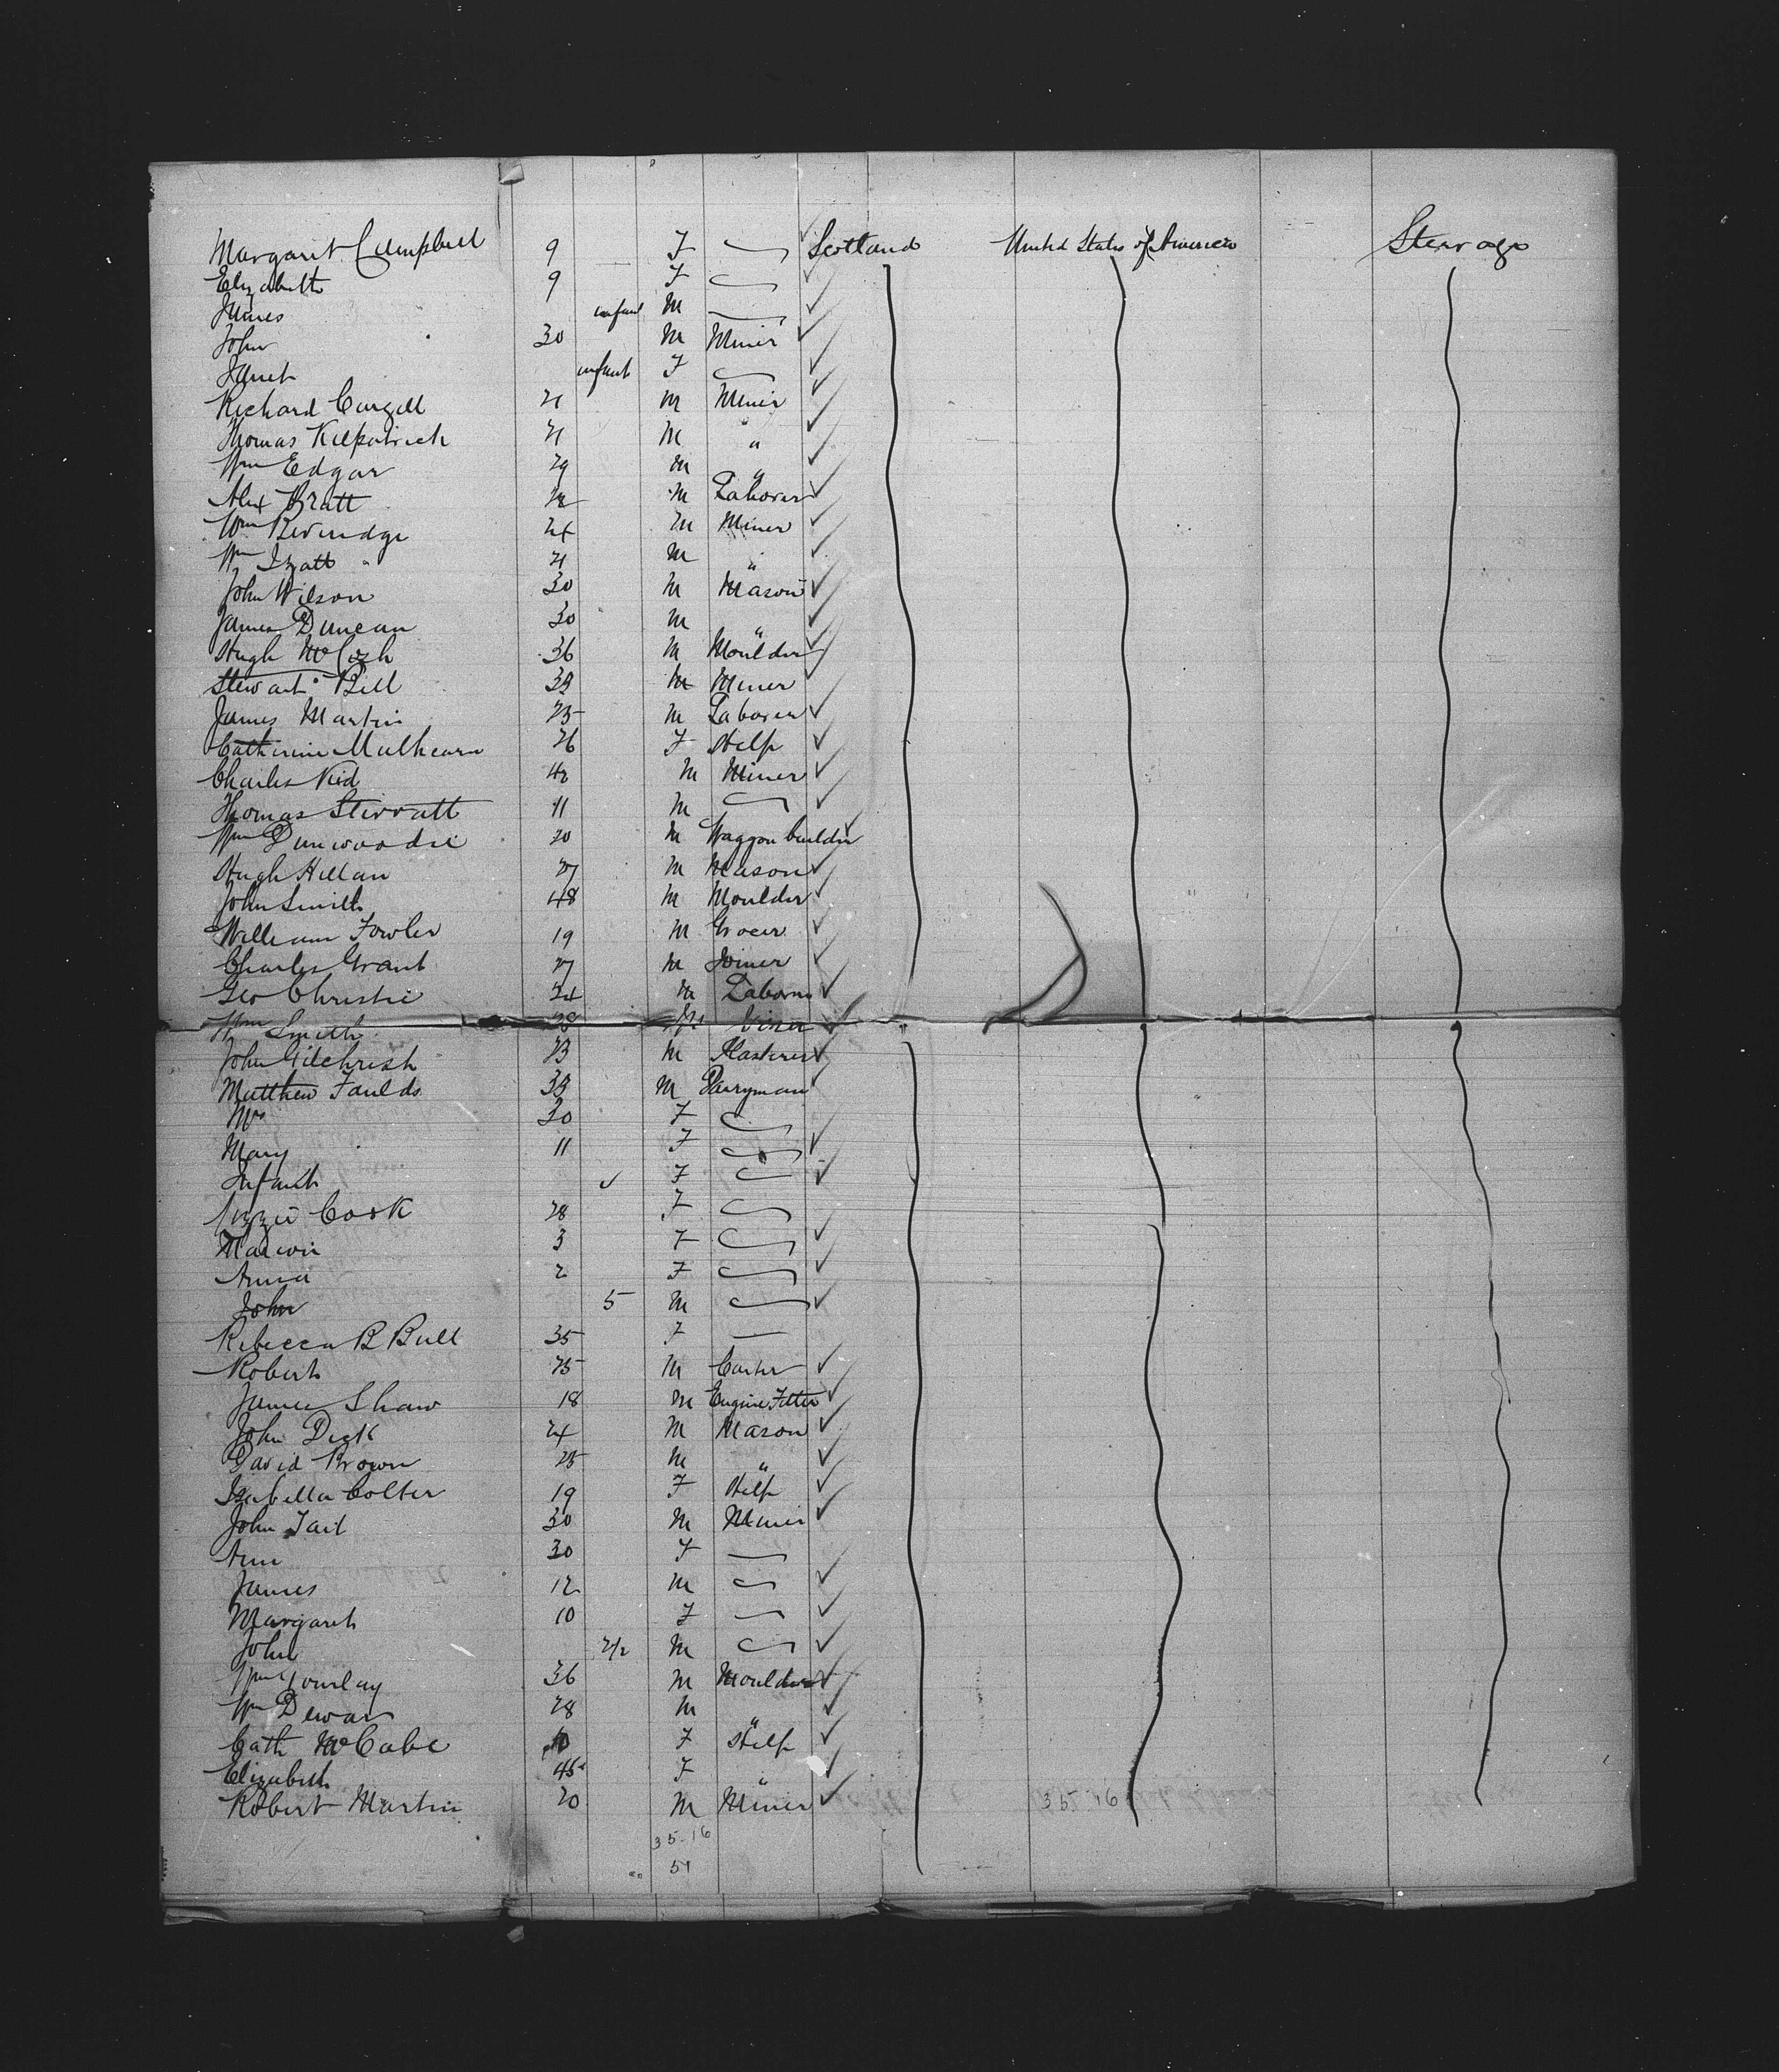 Margaret Campbell 9 F Scotland United States of America Steerage
Elizabeth 9 F
James infant M
John 30 M Miner
Janet infant F
Richard Cargill 21 M Miner
Thomas Kilpatrick 21 M "
Wm Edgar 29 M "
Alex Bratt M Laborer
Wm Beveridge 24 M Miner
Wm Izatt 21 M "
John Wilson 30 M Mason
James Duncan 30 M "
Hugh McCosh 36 M Moulder
Stewart Bell 39 M Miner
James Martin 25 M Laborer
Catherine Mulhearn 26 F Help
Charles Neid 42 M Miner
Thomas Stirratt 11 M
Wm Dunwoodie 20 M Waggon builder
Hugh Hillan 27 M Mason
John Smith 48 M Moulder
William Fowler 19 M Grocer
Charles Grant 27 M Joiner
Geo Christie 24 M Laborer
Wm Smith 28 M
John Gilchrist 23 M Plasterer
Matthew Faulds 39 M Dairyman
Mrs 30 F
Mary 11 F
Infant F
Lizzie Cook 28 F
Marion 3 F
Anna 2 F
John 5 M
Rebecca B Bull 35 F
Robert 25 M Carter
James Shaw 18 M Engine Fitter
John Dick 24 M Mason
David Brown 25 M "
Isabella Colter 19 F Help
John Tait 30 M Miner
Ann 30 F
James 12 M
Margaret 10 F
John M
Wm Gourlay 36 M Moulder
Wm Dewar 28 M "
Cath McCabe F Help
Elizabeth 45 F "
Robert Martin 20 M Miner 35 16
35.16
51